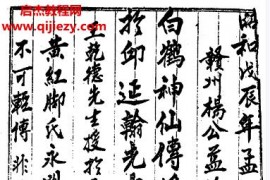 启杰教程网
www.qijiezy.com
和戊辰年孟
贛州楊公益
白鶴神仙傳
於邱延翰
乾德先生授於
黃紅脚氏永
不可輕傳非